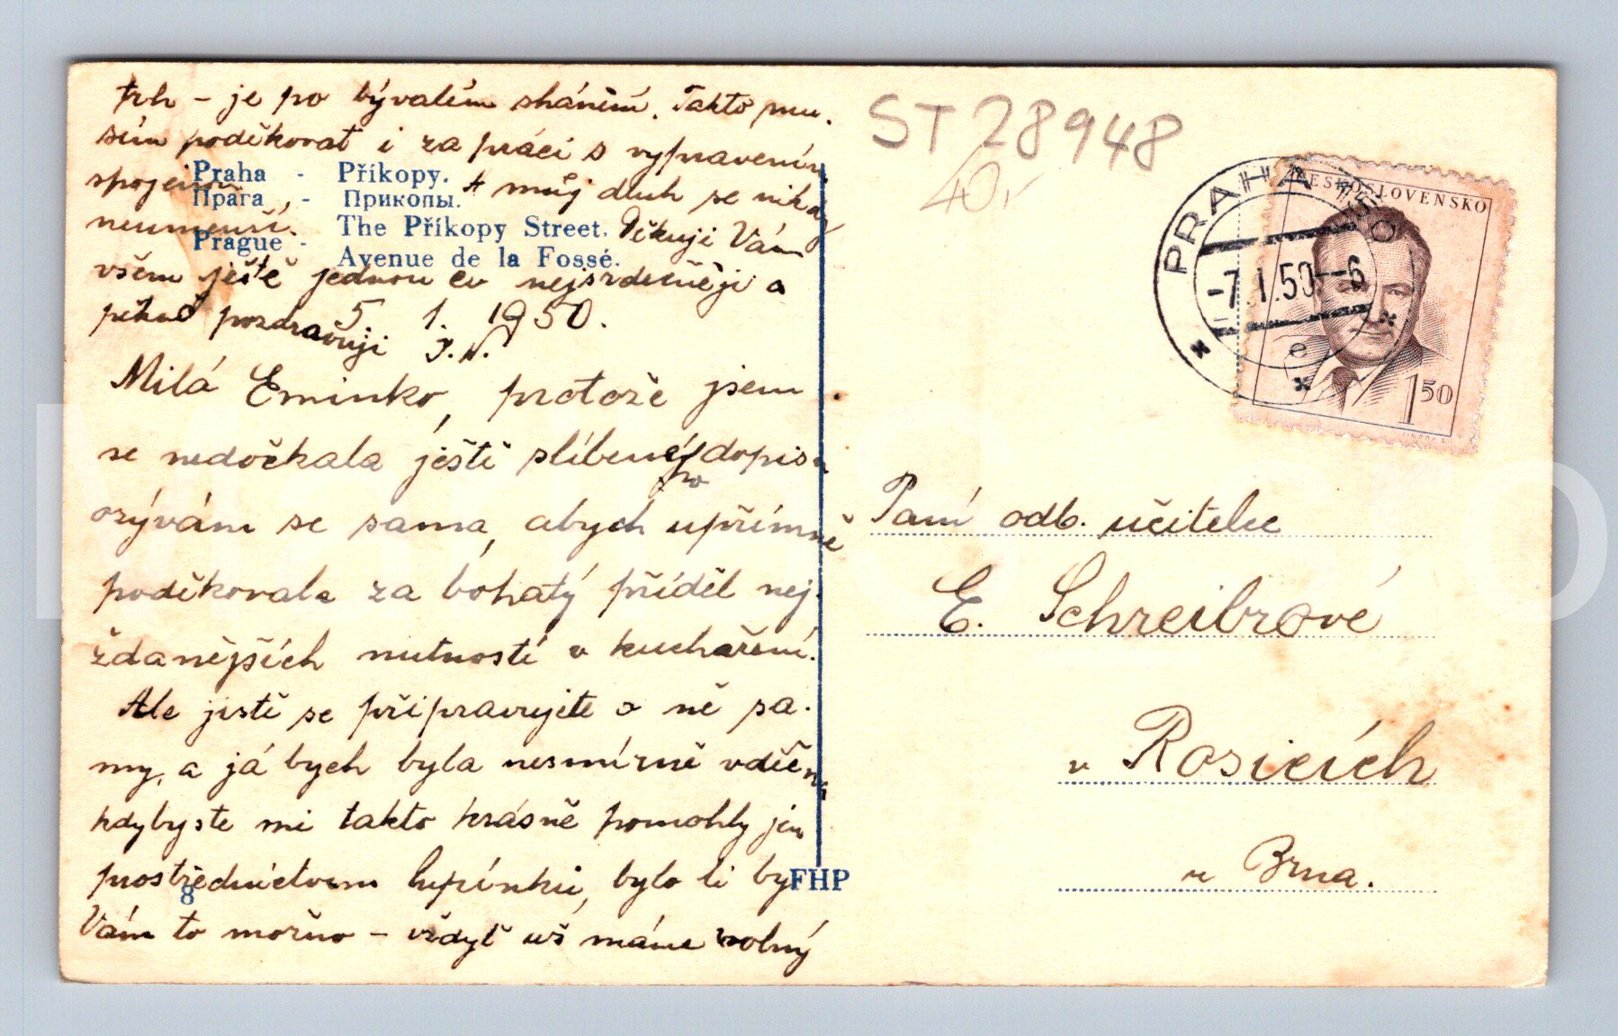 trh – je po bývalém shánění. Takto mu-
sím poděkovat i za práci s vypravením
spojenou, A můj dluh se nikdy
neumenší. Děkuji Vám
všem ještě jednou co nejsrdečněji a
pěkně pozdravuji J.N.
Praha - Příkopy.
Прага - Прикопы.
Prague - The Příkopy Street.
Avenue de la Fossé.
5 1. 1950.
Milá Eminko, protože jsem
se nedočkala ještě slíbeného dopisu
ozývám se sama, abych upřímně
poděkovala za bohatý příděl nej-
ždanějších nutností v kuchaření.
Ale jistě se připravujete o ně sa-
my, a já bych byla nesmírně vděčna
kdybyste mi takto krásně pomohly jen
prostřednictvem lupínků, bylo li by
Vám to možno – vždyť už máme volný
8
FHP
ST 28948
40,-
PRAHA
-7.I.50--6
e
ČESKOSLOVENSKO
1 50
Paní odb. učitelce
E. Schreibrové
v Rosicích
u Brna.